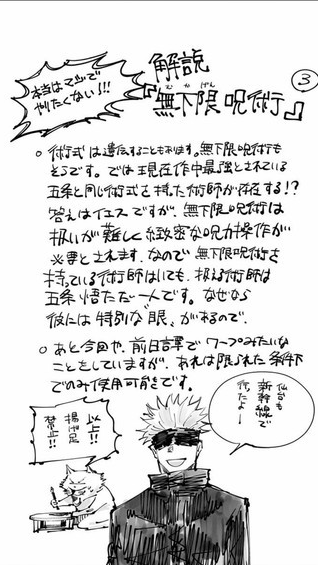 本当は文字で
やりたくない!!!
解説
③
むかげん
『無下限呪術』
○術式は遺伝することもあります。無下限呪術も
そうです。では現在作中最強とされている
五条と同じ術式を持った術師が存在する!?
答えはイエスですが、無下限呪術は
扱いが難しく緻密な呪力操作が
必要とされます。なので無下限呪術を
持っている術師はいても、扱える術師は
五条悟ただ一人です。なぜなら
彼には特別な"眼"があるので。
○あと今回や、前日譚でワープみたいな
ことをしていますが、あれは限られた条件下
でのみ使用可能です。
仙台も
新幹線で
行ったよー
以上!!
揚げ足
禁止!!